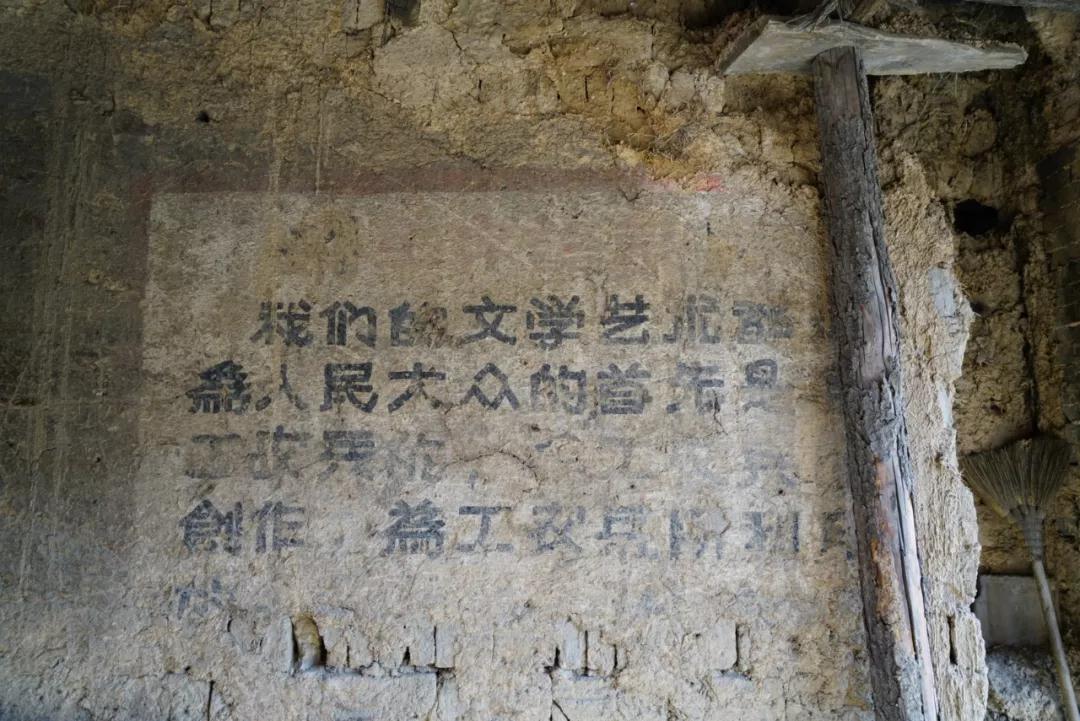 我们的文学艺术都
為人民大众的首先是
工农兵的，为工农兵
創作，為工农兵所利用
的。